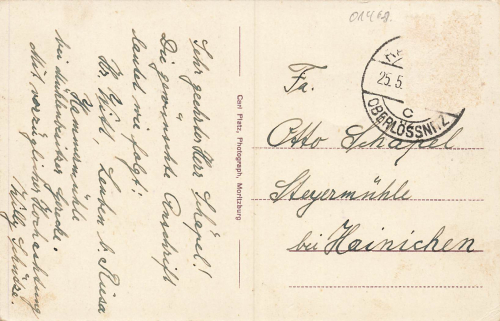 Sehr geehrter Herr Schapel!
Die gewünschte Anschrift
lautet wie folgt:
Leuben b. Riesa
Hammermühle
Mit vorzüglicher Hochachtung
Willy
Carl Platz, Photograph, Moritzburg
25.5
C
OBERLÖSSNITZ
Fa.
Otto Schapel
Steyermühle
bei Hainichen